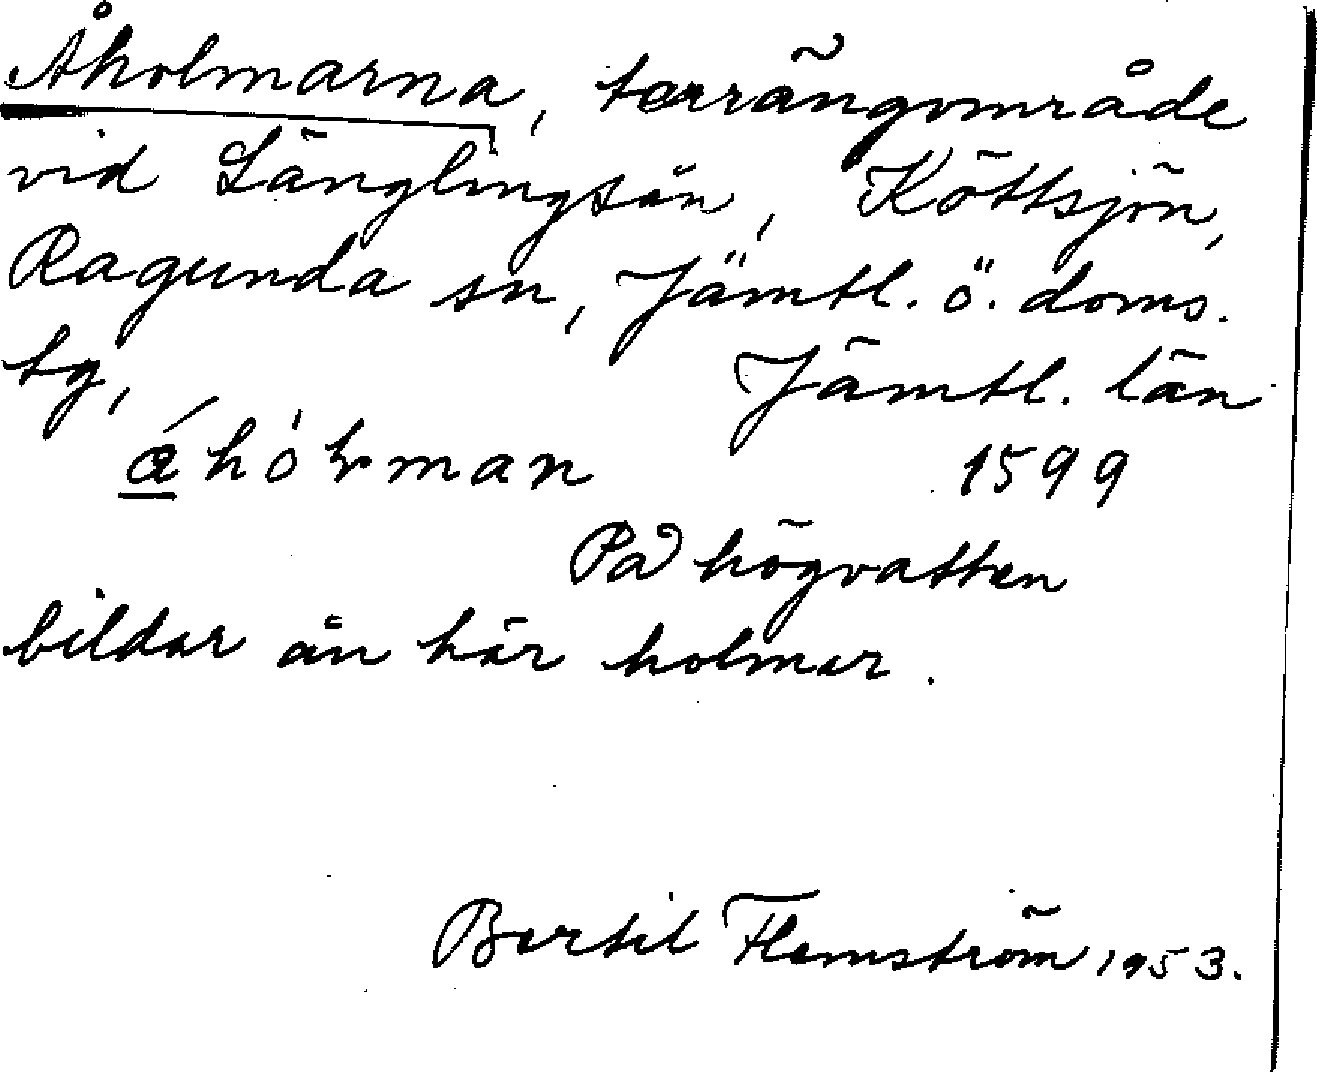 Åholmarna, terrängområde
vid Länglingsån, Köttsjön,
Ragunda sn, Jämtl. ö. doms.
tg, Jämtl. län
1599
På högvatten
bildar ån här holmar.
Bertil Flemström 1953.